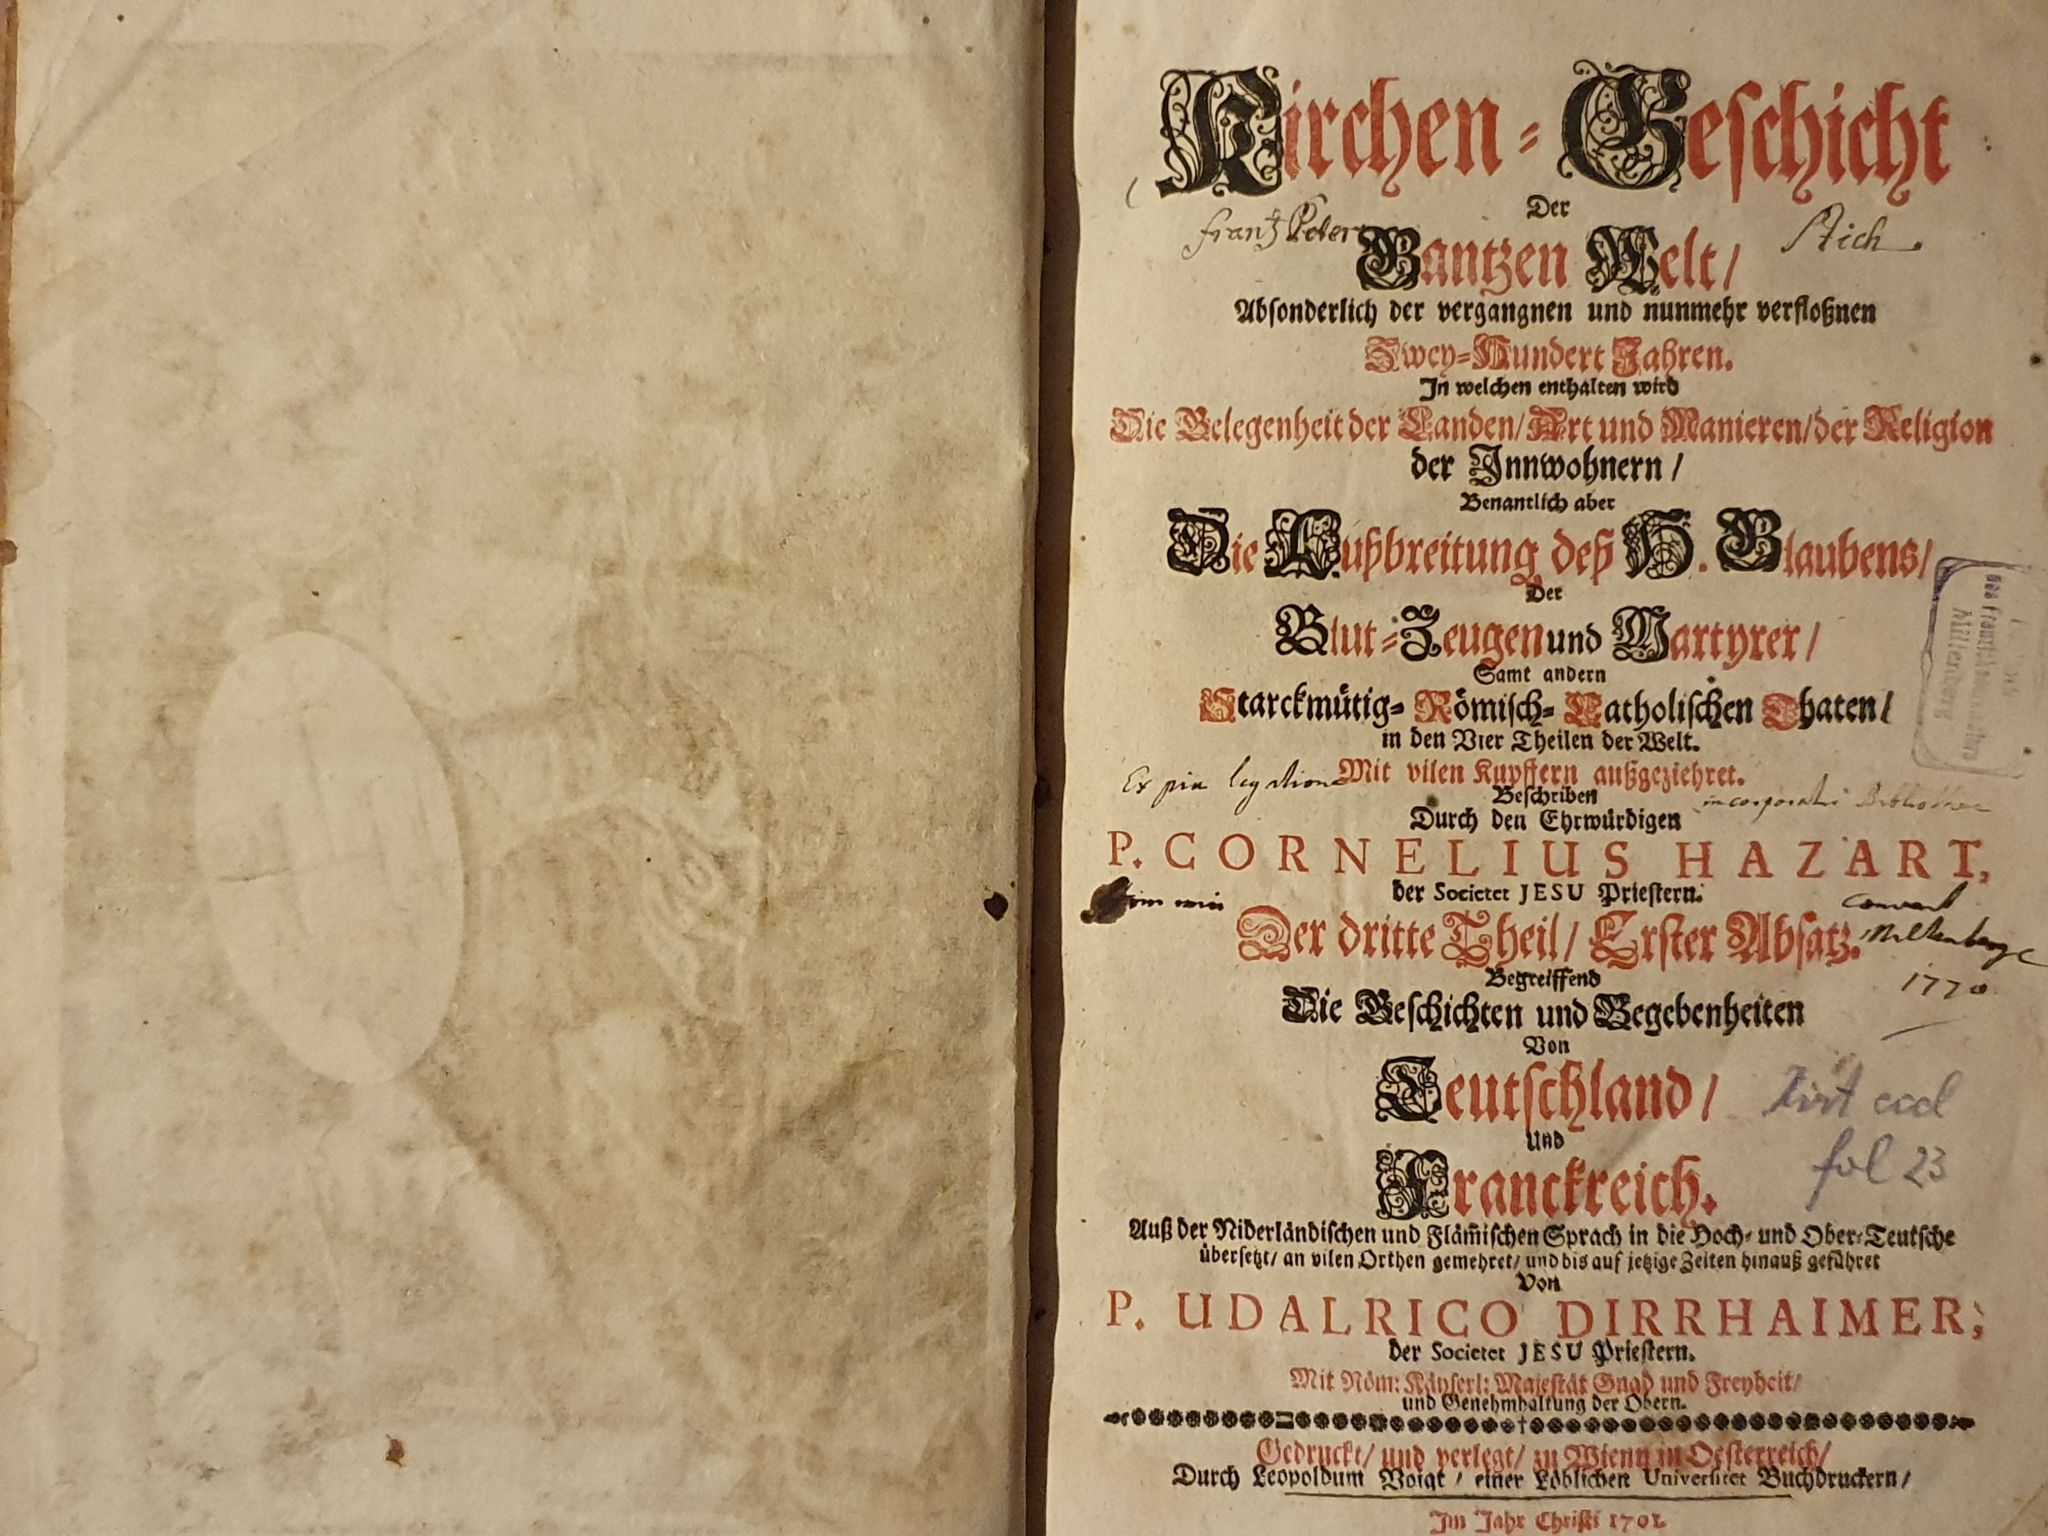 Kirchen-Geschicht
Der
Gantzen Welt/
Frantz Peter Stich
Absonderlich der vergangnen und nunmehr verfloßnen
Zwey-Hundert Jahren.
In welchen enthalten wird
Die Gelegenheit der Landen/ Art und Manieren/ der Religion
der Innwohnern/
Benantlich aber
Die Außbreitung deß H. Glaubens/
Der
Blut-Zeugen und Martyrer/
Samt andern
Starckmütig- Römisch- Catholischen Thaten/
in den Vier Theilen der Welt.
Mit vilen Kupffern außgeziehret.
Ex pia legatione incorporatus Bibliothec
Beschriben
Durch den Ehrwürdigen
P. CORNELIUS HAZART,
der Societet JESU Priestern.
Der dritte Theil/ Erster Absatz.
convent
Miltenberge
1770
Begreiffend
Die Geschichten und Begebenheiten
Von
Teutschland/
Und
Franckreich.
fol 23
Auß der Niderländischen und Flämischen Sprach in die Hoch- und Ober-Teutsche
übersetzt/ an vilen Orthen gemehret/ und bis auf jetzige Zeiten hinauß geführet
Von
P. UDALRICO DIRRHAIMER,
der Societet JESU Priestern.
Mit Röm: Käyserl: Majestät Gnad und Freyheit/
und Genehmhaltung der Obern.
Gedruckt/ und verlegt/ zu Wienn in Oesterreich/
Durch Leopoldum Voigt/ einer Löblichen Universitet Buchdruckern/
Im Jahr Christi 1701.
Miltenberg